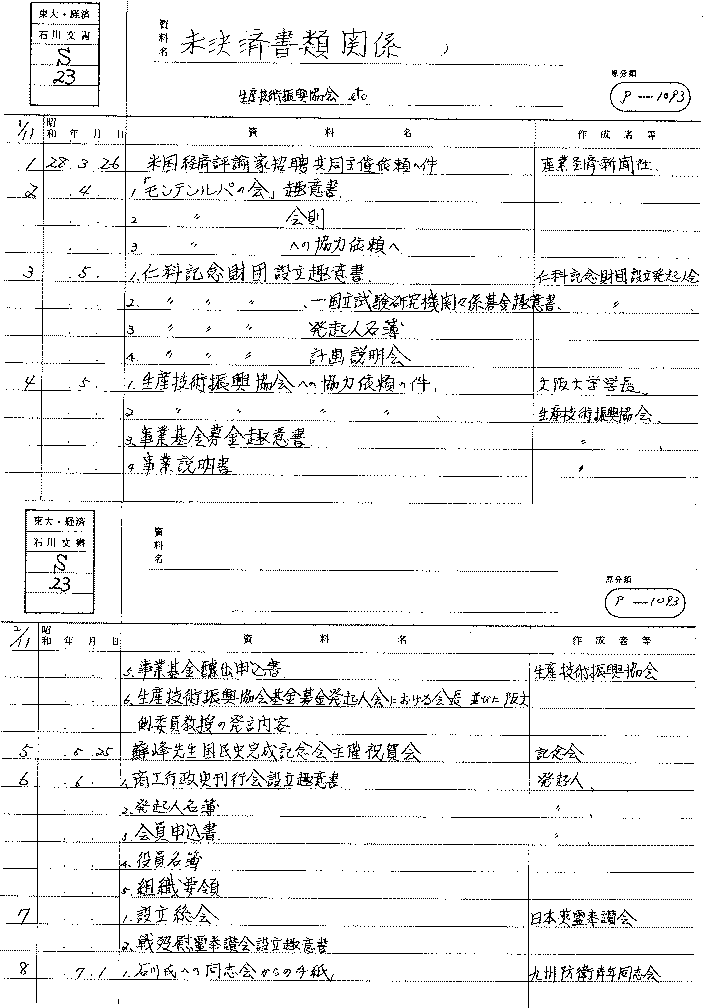 東大・経済
石川文書
S
23
資料名 未決済書類関係
生産技術振興協会 etc
原分類
P-1093
1/11 昭和 年 月 日 資料名 作成者等
1 28 3 26 米国経済評論家招聘共同主催依頼の件 産業経済新聞社
2 4. 1.「モンテンルパの会」趣意書
2 〃 会則
3 〃 への協力依頼
3 5. 1.仁科記念財団設立趣意書 仁科記念財団設立発起人会
2. 〃 〃 〃 、国立試験研究機関関係募金趣意書、 〃
3 〃 〃 〃 発起人名簿
4. 〃 〃 〃 計画説明会
4 5 1.生産技術振興協会への協力依頼の件, 大阪大学学長
2 〃 〃 〃 〃 〃 生産技術振興協会
3.事業基金募金趣意書 〃
4.事業説明書 〃
東大・経済
石川文書
S
23
資料名
原分類
P-1093
2/11 昭和 年 月 日 資料名 作成者等
5.事業基金醵出申込書 生産技術振興協会
6.生産技術振興協会基金募金発起人会における会長並びに阪大
側委員教授の発言内容
5 5 25 蘇峰先生国民史完成記念会主催祝賀会 記念会
6 6 1.商工行政史刊行会設立趣意書 発起人
2.発起人名簿 〃
3.会員申込書 〃
4.役員名簿
5.組織要領
7 1.設立総会 日本英霊奉讃会
2.戦没慰霊奉讃会設立趣意書
8 7 1 1.石川氏への同志会からの手紙 九州防衛青年同志会